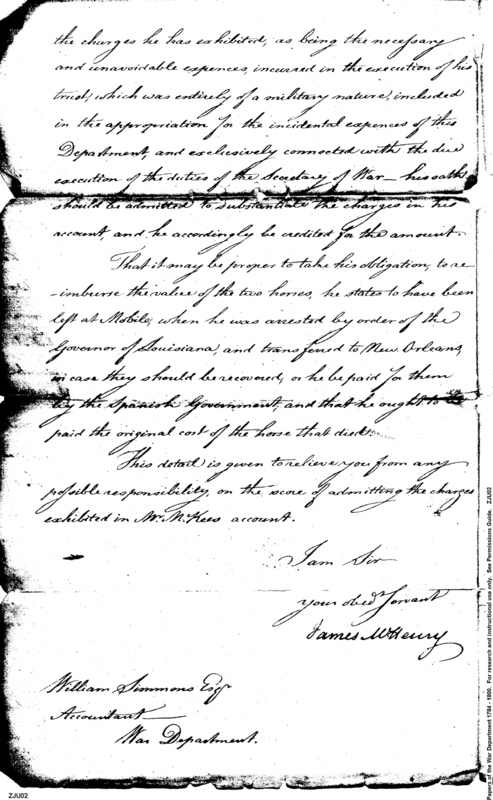 the charges he has exhibited, as being the necessary
and unavoidable expences, incurred in the execution of his
trust, which was entirely of a military nature, included
in the appropriation for the incidental expences of this
Department, and exclusively connected with the due
execution of the duties of the Secretary of War — his oaths
should be admitted to substantiate the charges in his
account, and he accordingly be credited for the amount.
That it may be proper to take his obligation, to re-
-imburse the value of the two horses, he states to have been
left at Mobile, when he was arrested by order of the
Governor of Louisiana, and transferred to New Orleans,
in case they should be recovered, or he be paid for them
by the Spanish Government, and that he ought to be
paid the original cost of the horse that died.
This detail is given to relieve you from any
possible responsibility, on the score of admitting the charges
exhibited in Mr. McKees account.
I am Sir
your obedt. servant
James McHenry
William Simmons Esqr
Accountant —
War Department.
ZJU02
Papers of the War Department 1784 - 1800. For research and instructional use only. See Permissions Guide. ZJU02